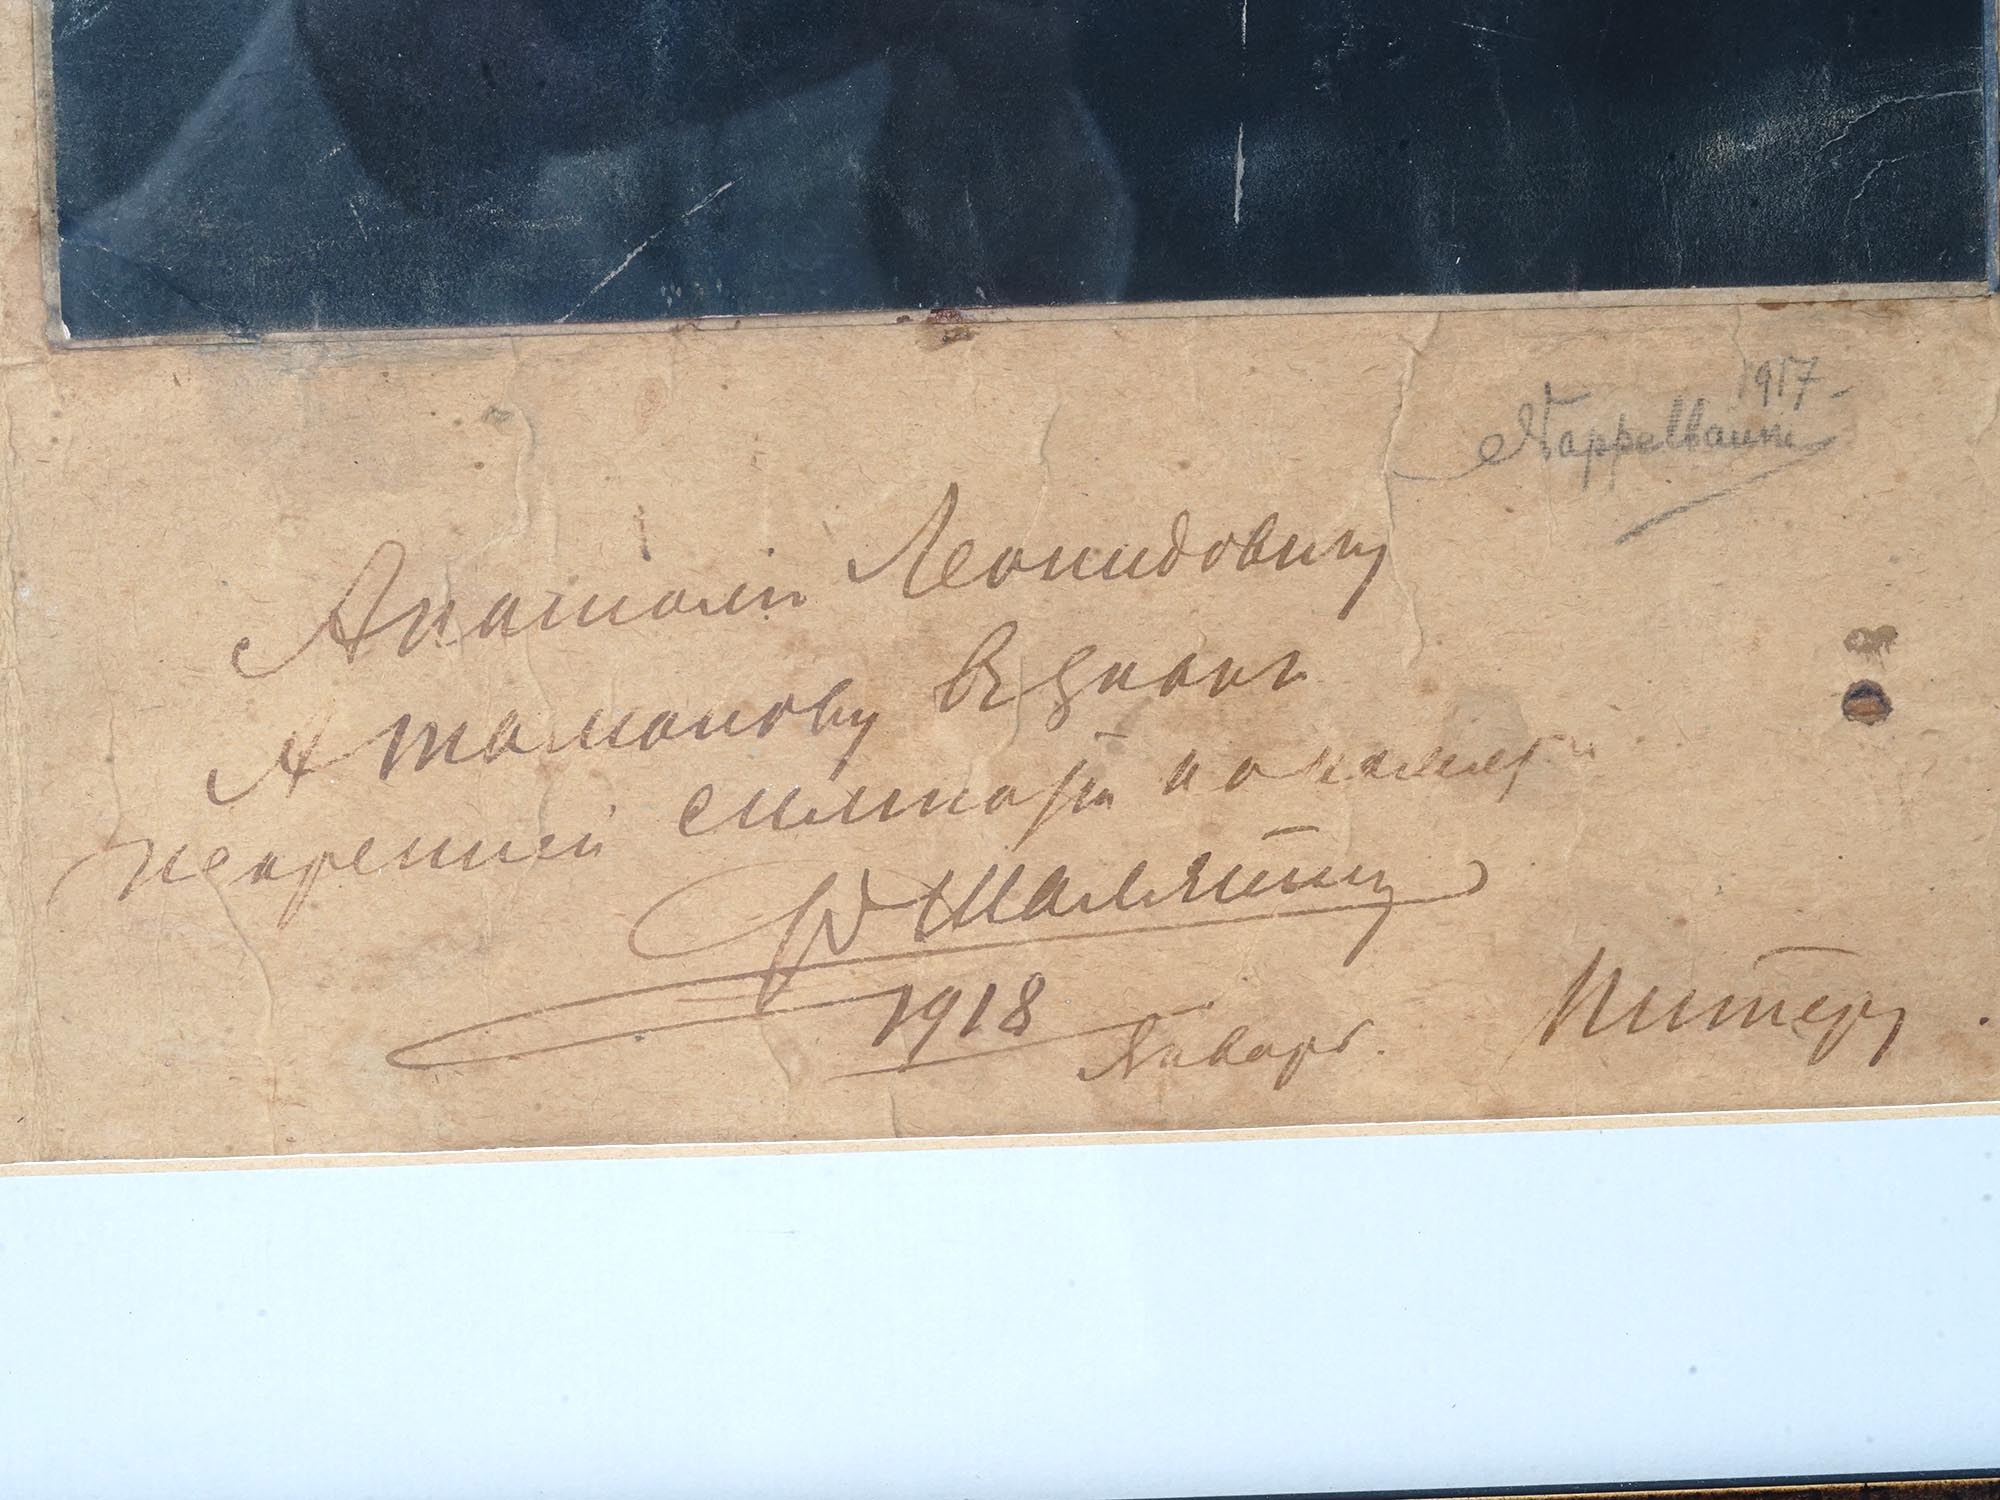 1917
Nappelbaum
Анатолiю Леонидовичу
Атаманову въ знакъ
искренней симпатiи на память
Ф Шаляпинъ
1918
Январь. Питеръ.